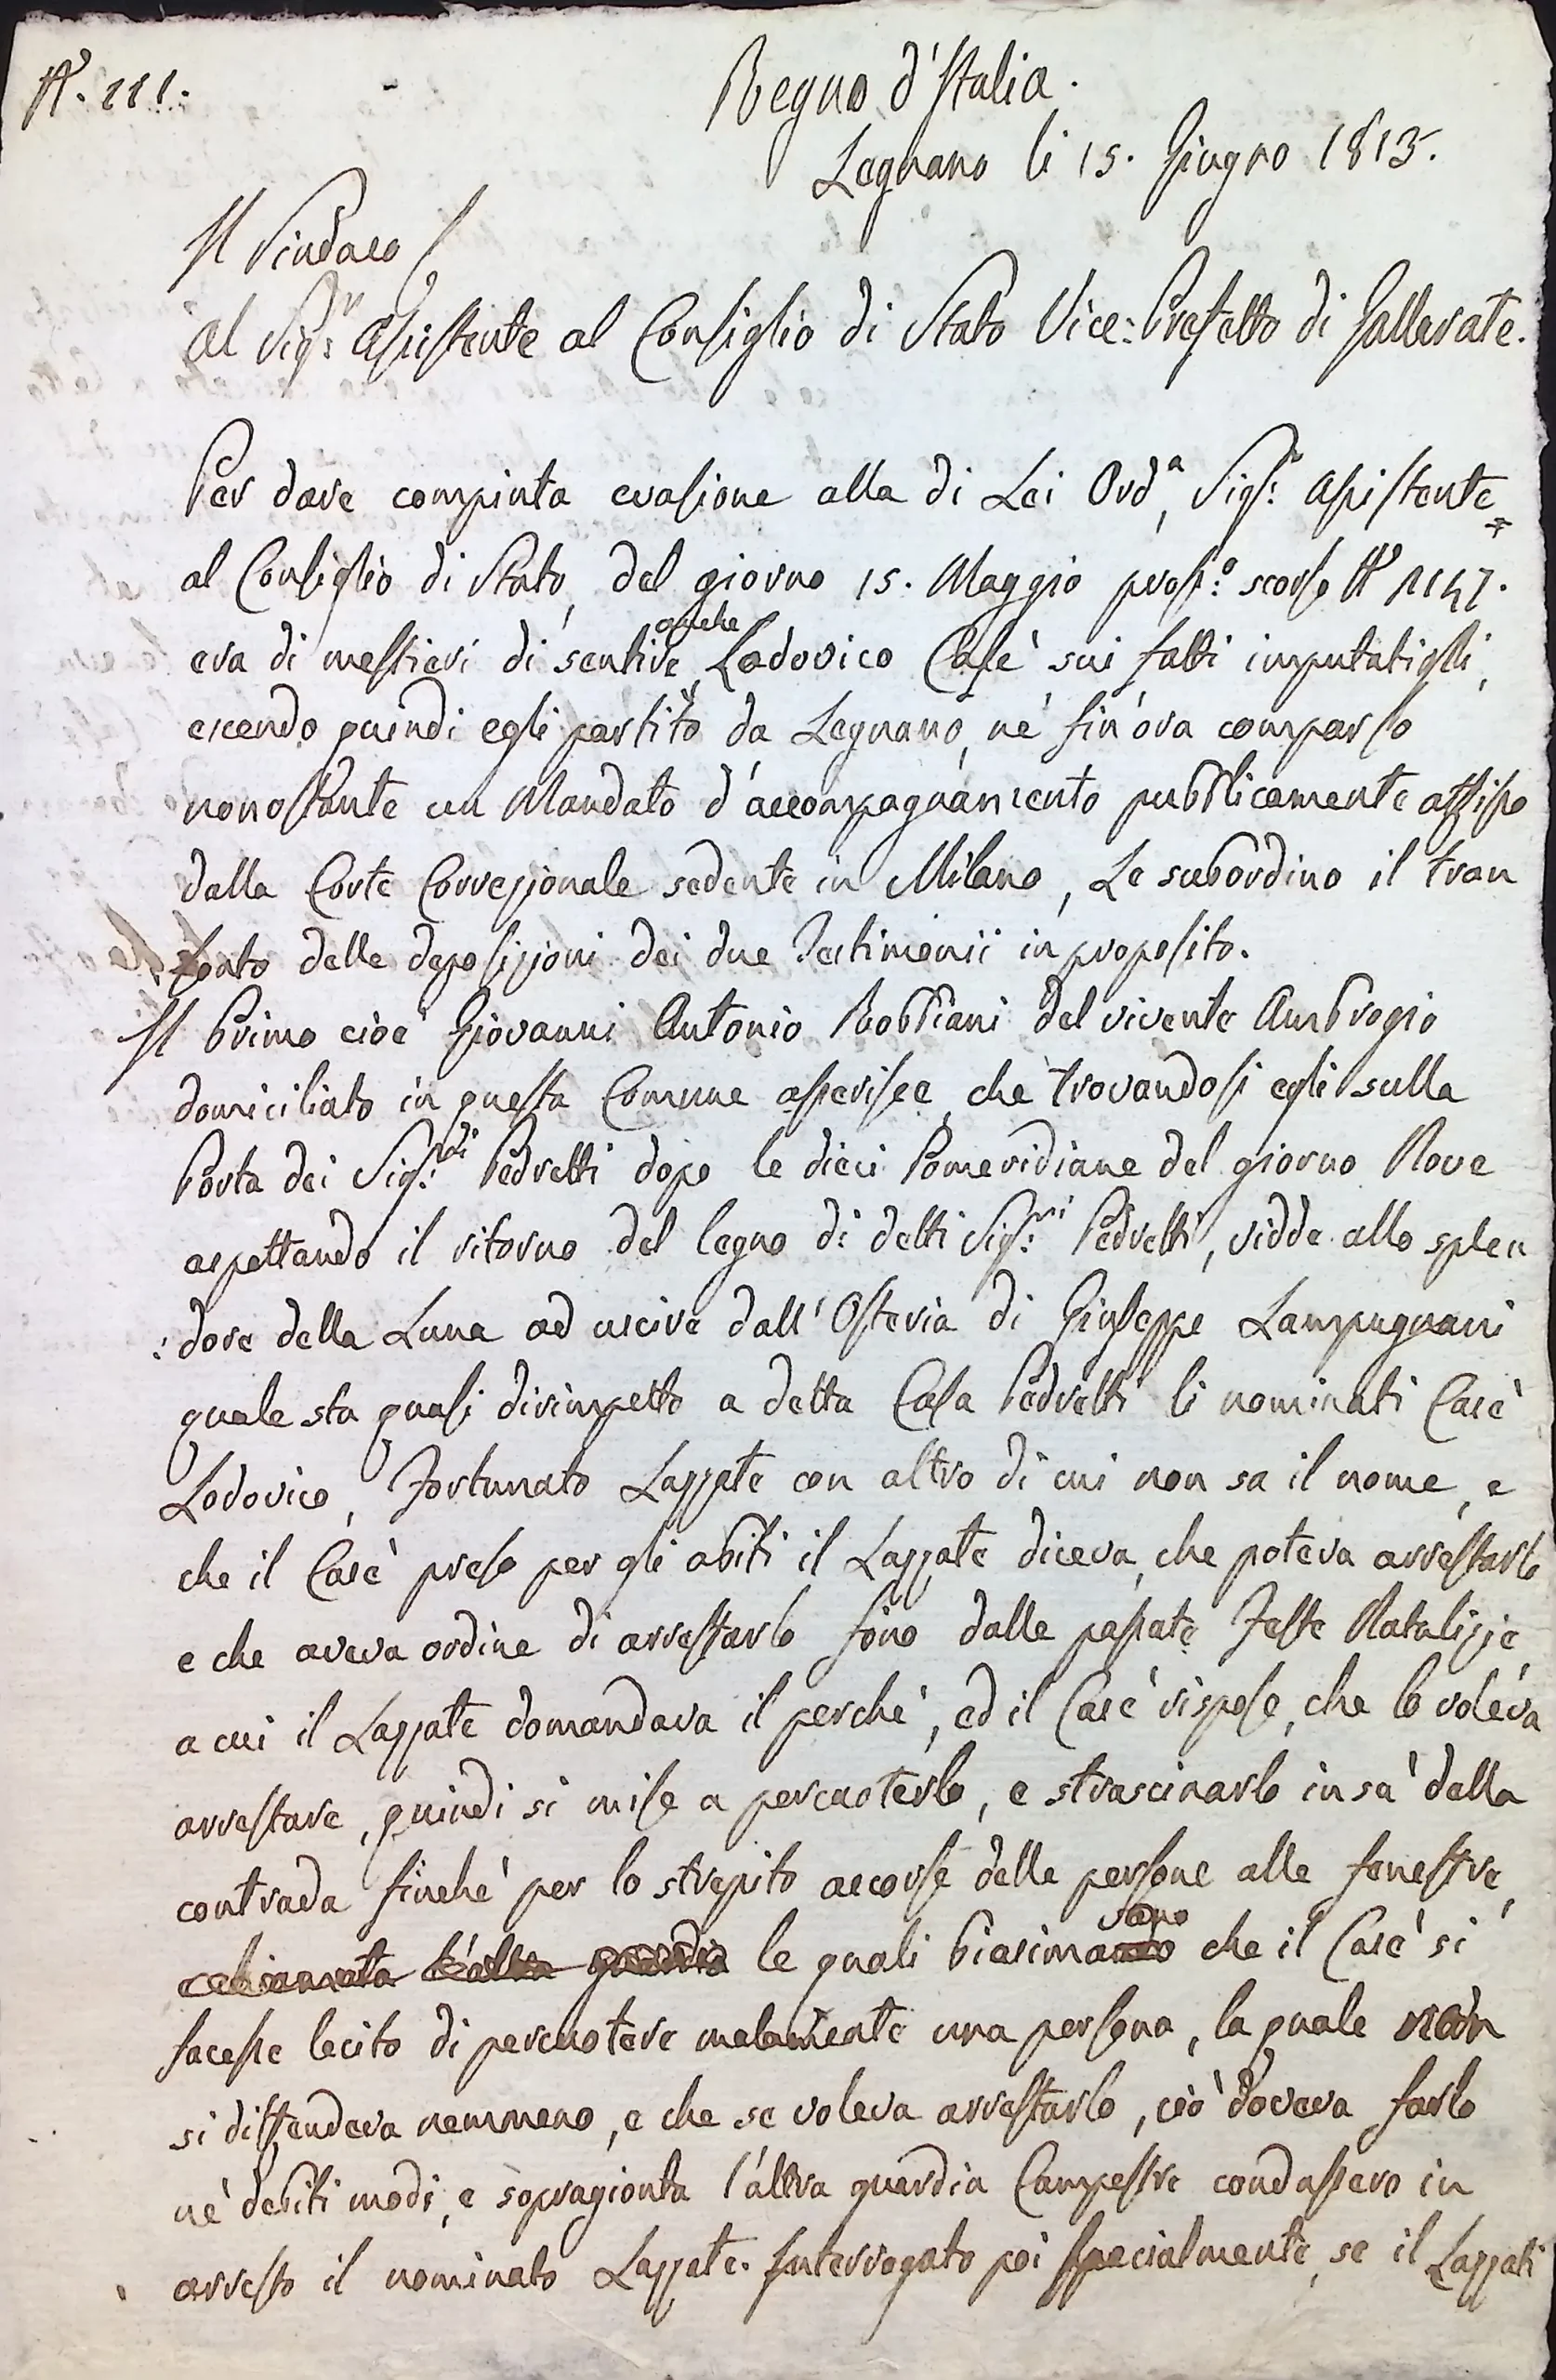 N.° 111.
Regno d'Italia.
Legnano li 15. Giugno 1813.
Il Sindaco
Al Sig.r Assistente al Consiglio di Stato Vice=Prefetto di Gallarate.
Per dare compiuta evasione alla di Lei Ord.a, Sig.r Assistente
al Consiglio di Stato, del giorno 15. Maggio pross.o scorso N.°
era di mestieri di sentire anche Lodovico Casè sui fatti imputatigli,
essendo quindi egli partito da Legnano, nè fin'ora comparso
nonostante un Mandato d'accompagnamento pubblicamente affisso
dalla Corte Correzionale sedente in Milano, Le subordino il tran
:sonto delle deposizioni dei due Testimonii in proposito.
Il Primo cioè Giovanni Antonio Robbiani del vivente Ambrogio
domiciliato in questa Comune asserisce, che trovandosi egli sulla
Porta dei Sig.ri Pedretti dopo le dieci Pomeridiane del giorno Nove
aspettando il ritorno del legno di detti Sig.ri Pedretti, vidde allo splen
:dore della Luna ad uscire dall'Osteria di Giuseppe Lampugnani
quale sta quasi dirimpetto a detta Casa Pedretti li nominati Casè
Lodovico, Fortunato Lazzate con altro di cui non sa il nome, e
che il Casè preso per gli abiti il Lazzate diceva, che poteva arrestarlo
e che aveva ordine di arrestarlo fino dalle passate Feste Natalizie,
a cui il Lazzate domandava il perchè, ed il Casè rispose, che lo voleva
arrestare, quindi si mise a percuoterlo, e strascinarlo in sà della
contrada finchè per lo strepito accorse delle persone alle fenestre,
le quali biasimavano che il Casè si
facesse lecito di percuotere malamente una persona, la quale non
si diffendeva nemmeno, e che se voleva arrestarlo, ciò doveva farlo
nè debiti modi, e sopragionta l'altra guardia Campestre condussero in
arresto il nominato Lazzate. Interrogato poi specialmente, se il Lazzati